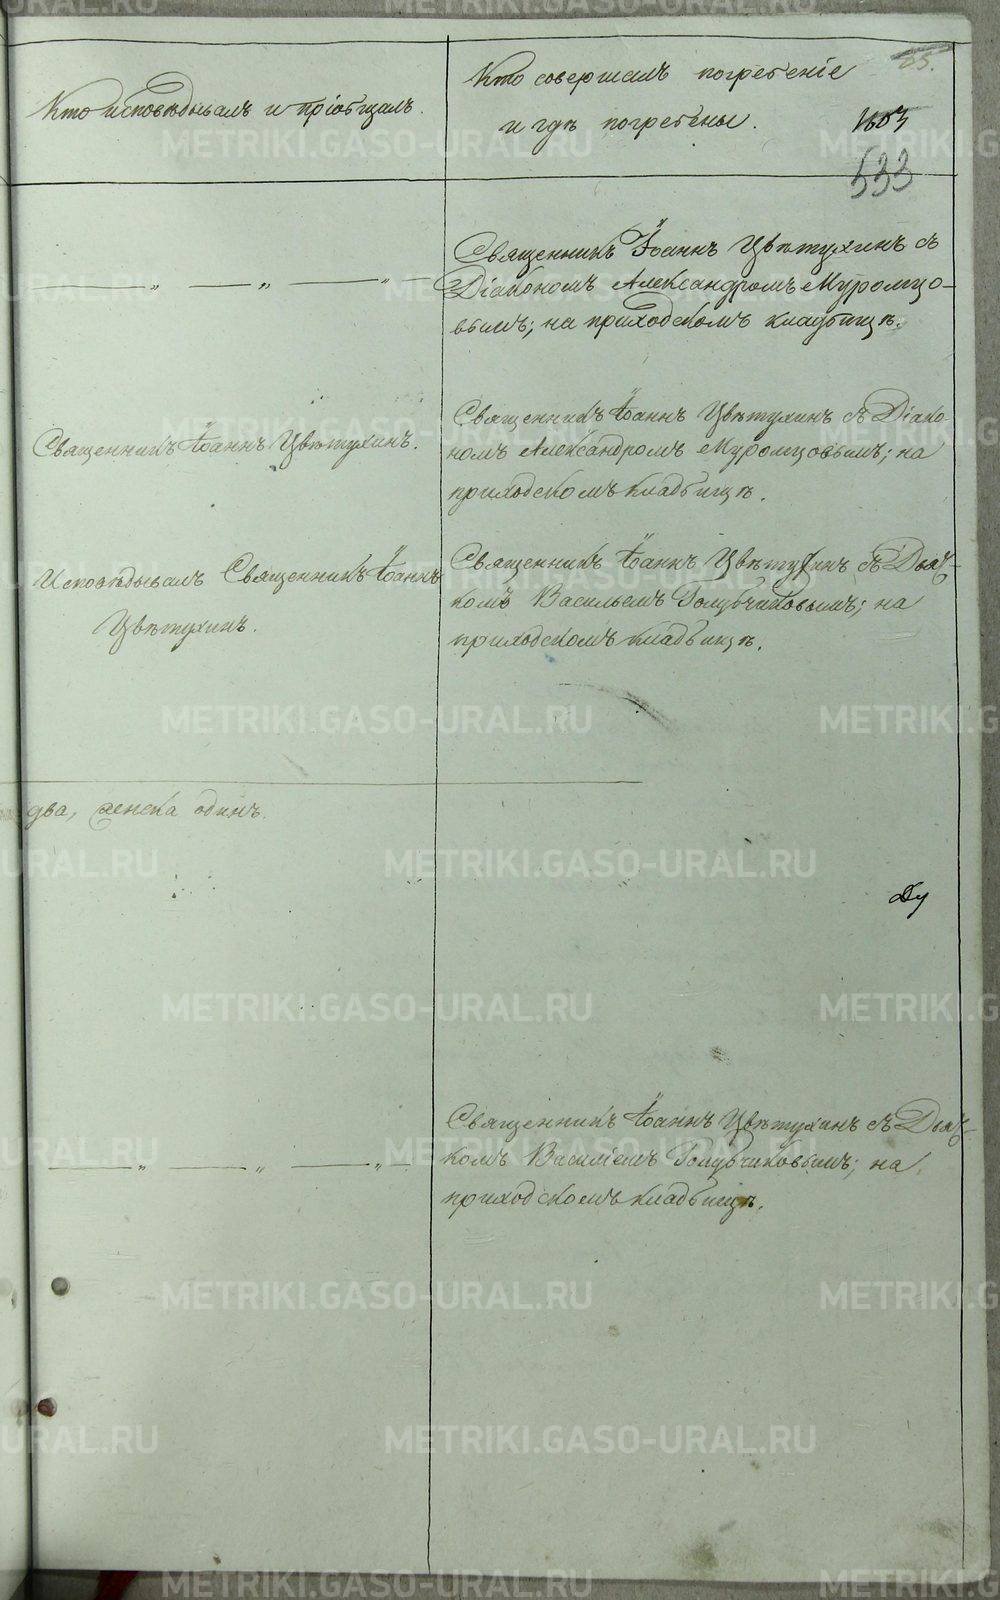 85.
Кто исповѣдывалъ и пріобщалъ.
Кто совершалъ погребеніе
и гдѣ погребены.
533
Священникъ Іоаннъ Цвѣтухинъ съ
Діакономъ Александромъ Муромцо-
вымъ; на приходскомъ кладбищѣ.
Священникъ Іоаннъ Цвѣтухинъ.
Священникъ Іоаннъ Цвѣтухинъ съ Діако-
номъ Александромъ Муромцовымъ; на
приходскомъ кладбищѣ.
Исповѣдывалъ Священникъ Іоаннъ
Цвѣтухинъ.
Священникъ Іоаннъ Цвѣтухинъ съ Дьяч-
комъ Васильемъ Голубчиковымъ; на
приходскомъ кладбищѣ.
два, женска одинъ.
Священникъ Іоаннъ Цвѣтухинъ съ Дьяч-
комъ Василіемъ Голубчиковымъ; на
приходскомъ кладбищѣ.
METRIKI.GASO-URAL.RU